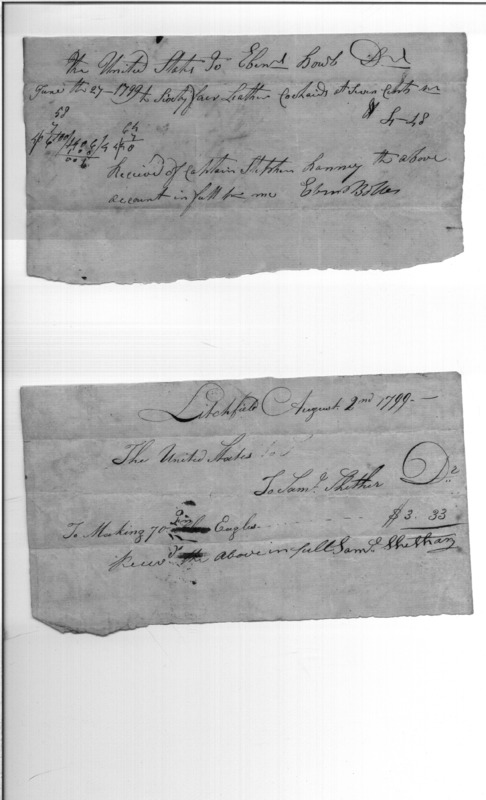 The United States To Eben Dr
June the 27 - 1799 to Sixty four Leather Cockards at Seven Cents
$ 4-48
64
7
Received of Captain Stephen Ranney the above
account in full by me Eben Bolles
Litchfield August 2nd 1799.-
The United States
To Saml. Shethar Dr
To Making 70 Eagles $3.33
Receivd the above in full Saml. Shethar